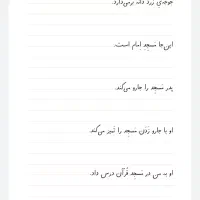 جوجه‌ی زرد دانه برمی‌دارد.
این‌جا مسجد امام است.
پدر مسجد را جارو می‌کند.
او با جارو زدن مسجد را تمیز می‌کند.
او به من در مسجد قرآن درس داد.